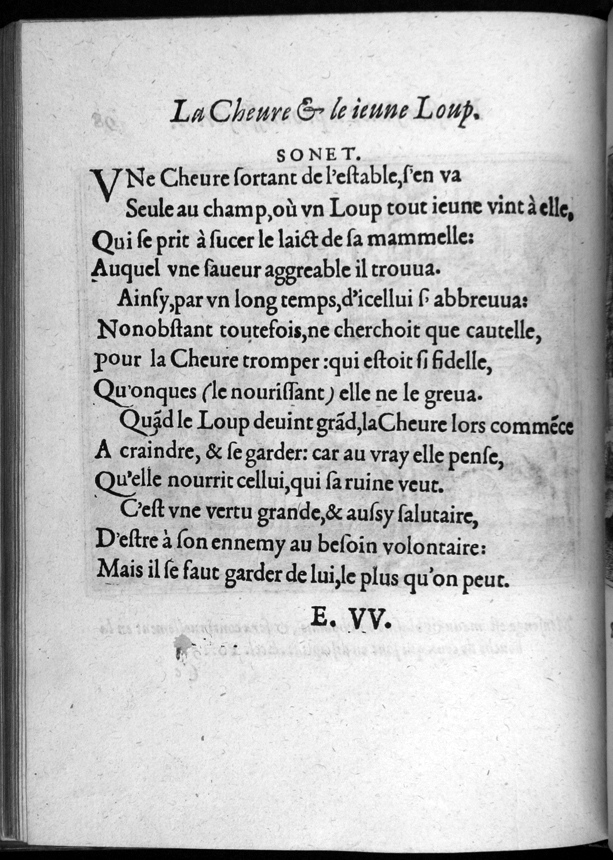 La Cheure & le ieune Loup.
SONET.
VNe Cheure ſortant de l'eſtable, ſ'en va
Seule au champ, où vn Loup tout ieune vint à elle,
Qui ſe prit à ſucer le laict de ſa mammelle:
Auquel vne ſaueur aggreable il trouua.
Ainſy, par vn long temps, d'icellui ſ' abbreuua:
Nonobſtant toutefois, ne cherchoit que cautelle,
pour la Cheure tromper: qui eſtoit ſi fidelle,
Qu'onques (le nouriſſant) elle ne le greua.
Quãd le Loup deuint grãd, la Cheure lors commẽce
A craindre, & ſe garder: car au vray elle penſe,
Qu'elle nourrit cellui, qui ſa ruine veut.
C'eſt vne vertu grande, & auſſy ſalutaire,
D'eſtre à ſon ennemy au beſoin volontaire:
Mais il ſe faut garder de lui, le plus qu'on peut.
E. VV.